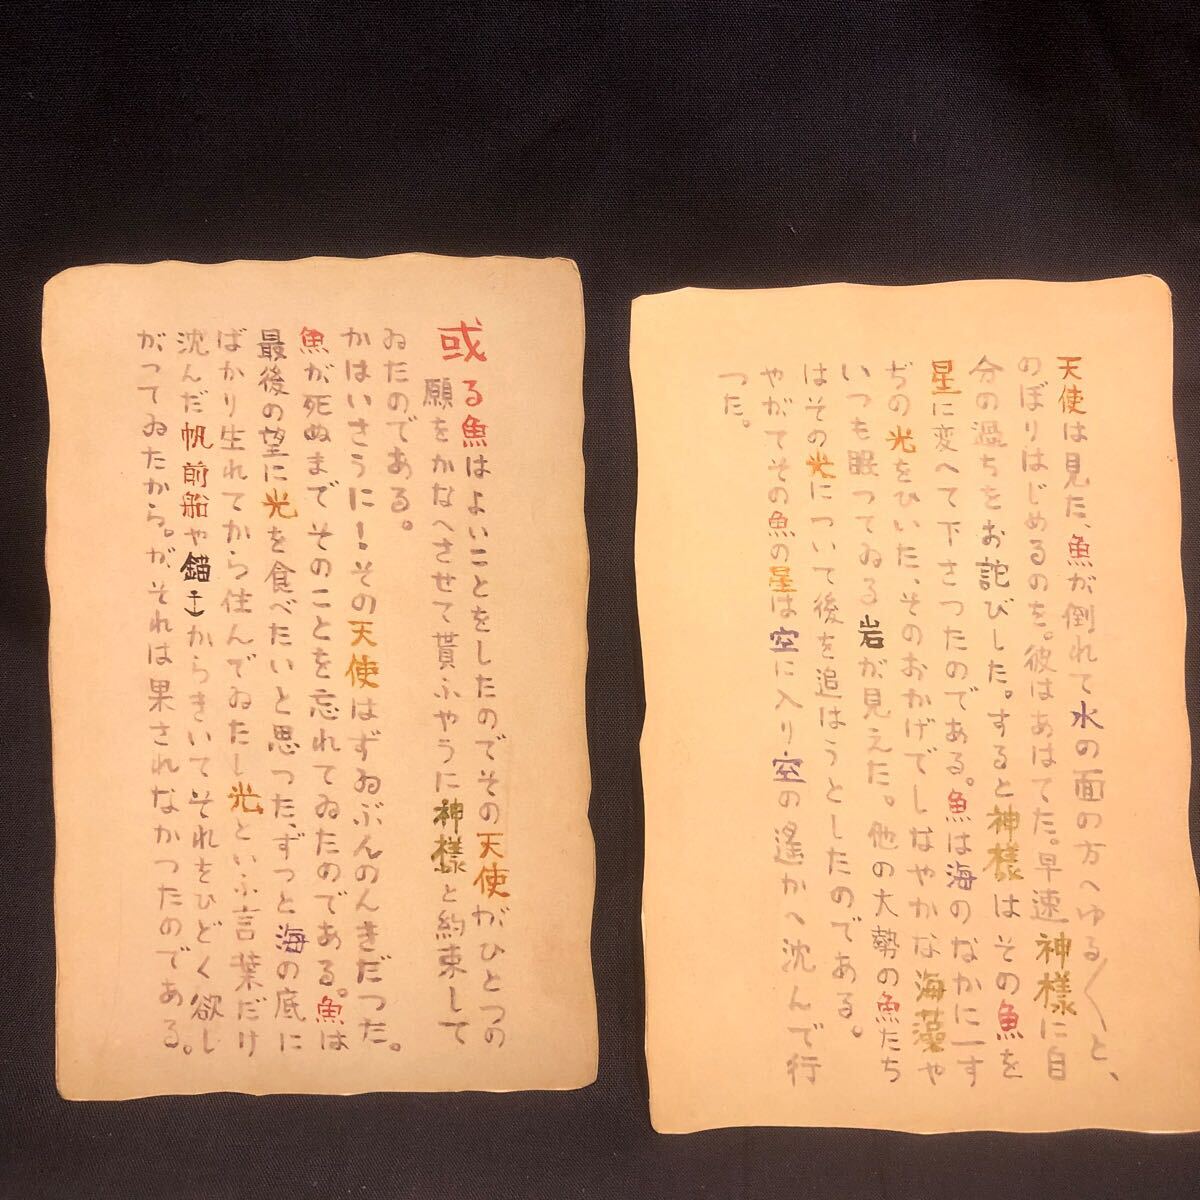 或る魚はよいことをしたのでその天使がひとつの
願をかなへさせて貰ふやうに神様と約束して
ゐたのである。
かはいさうに!その天使はずゐぶんのんきだつた。
魚が死ぬまでそのことを忘れてゐたのである。魚は
最後の望に光を食べたいと思つた、ずつと海の底に
ばかり生れてから住んでゐたし光といふ言葉だけ
沈んだ帆前船や錨からきいてそれをひどく欲し
がつてゐたから。が、それは果されなかつたのである。
天使は見た、魚が倒れて水の面の方へゆる〱と、
のぼりはじめるのを。彼はあはてた。早速神様に自
分の過ちをお詫びした。すると神様はその魚を
星に変へて下さつたのである。魚は海のなかに一す
ぢの光をひいた、そのおかげでしなやかな海藻や
いつも眠つてゐる岩が見えた。他の大勢の魚たち
はその光について後を追はうとしたのである。
やがてその魚の星は空に入り空の遙かへ沈んで行
つた。